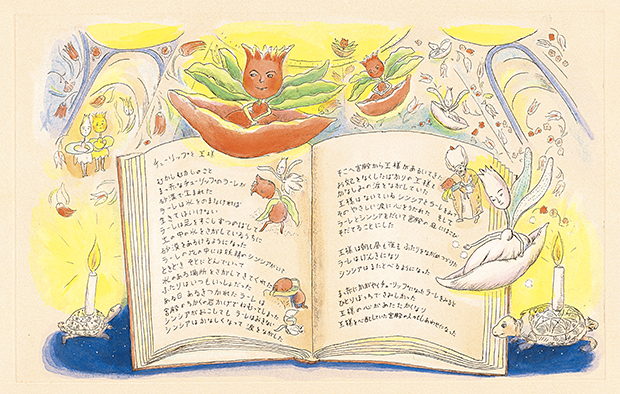 チューリップと王様
むかしむかしのこと
まっ赤なチューリップのラーレが
砂漠で生まれた
ラーレは水をのまなければ
生きてはいけない
ラーレは足をすこしずつのばして
土の中の水をさがしているうちに
砂漠をあるけるようになった
ラーレの花の中には妖精のシンシアがいて
ときどき そとにとんでいって
水のある場所をさがしてきてくれた
ふたりはいつもいっしょだった
ある日 あるきつかれたラーレは
宮殿のちかくの岩かげでねむってしまった
シンシアがおこしても ラーレはおきない
シンシアはかなしくなって 涙をながした
そこへ宮殿から王様があるいてきた
お妃をなくしたばかりの王様も
かなしみの涙をながしていた
王様はないているシンシアとラーレをみて
そのやさしい涙に心をうたれた そして
ラーレとシンシアをだいて宮殿の庭に
そだてることにした
王様は朝も昼も夜も ふたりをながめつづけた
ラーレはげんきになり
シンシアはまたとべるようになった
まっ赤にかがやくチューリップになったラーレをみると
ひとりぼっちでさみしかった
王様の心があたたかくなり
王様を心配していた宮殿の人々もしあわせになった